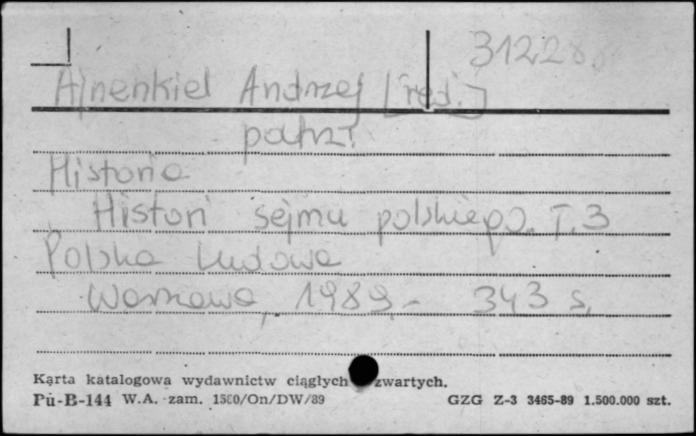 31228
Ajnenkiel Andrzej [red.]
patrz:
Historia
Histori sejmu polskiego. T.3
Polska Ludowa
Warszawa, 1989.- 343 s.
Karta katalogowa wydawnictw ciągłych zwartych.
Pu-B-144 W.A. zam. 1580/On/DW/89 GZG Z-3 3465-89 1.500.000 szt.